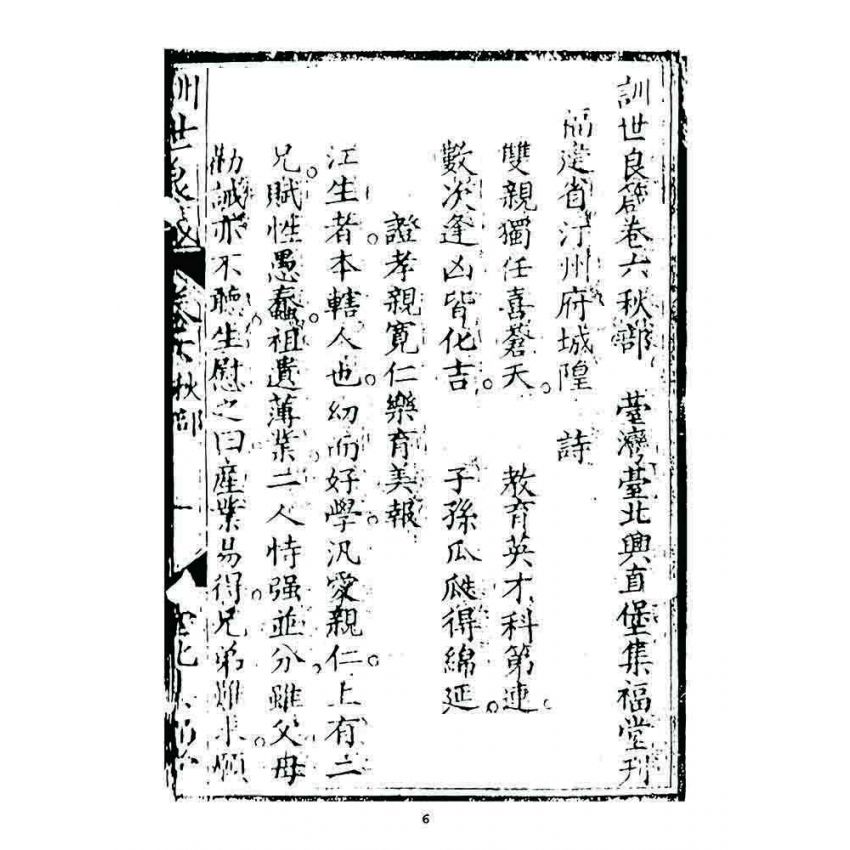 訓世良箴卷六秋部　臺灣臺北興直堡集福堂刊
福建省汀州府城隍　詩
雙親獨任喜蒼天。　教育英才科第連。
數次逢凶皆化吉。　子孫瓜瓞得綿延。
證孝親寬仁樂育美報
江生者。本轄人也。幼而好學。汎愛親仁。上有二
兄。賦性愚蠢。祖遺薄業。二人恃强並分。雖父母
勸誡亦不聽。生慰之曰。產業易得。兄弟難求。願
訓世良箴
卷六秋部
一
6